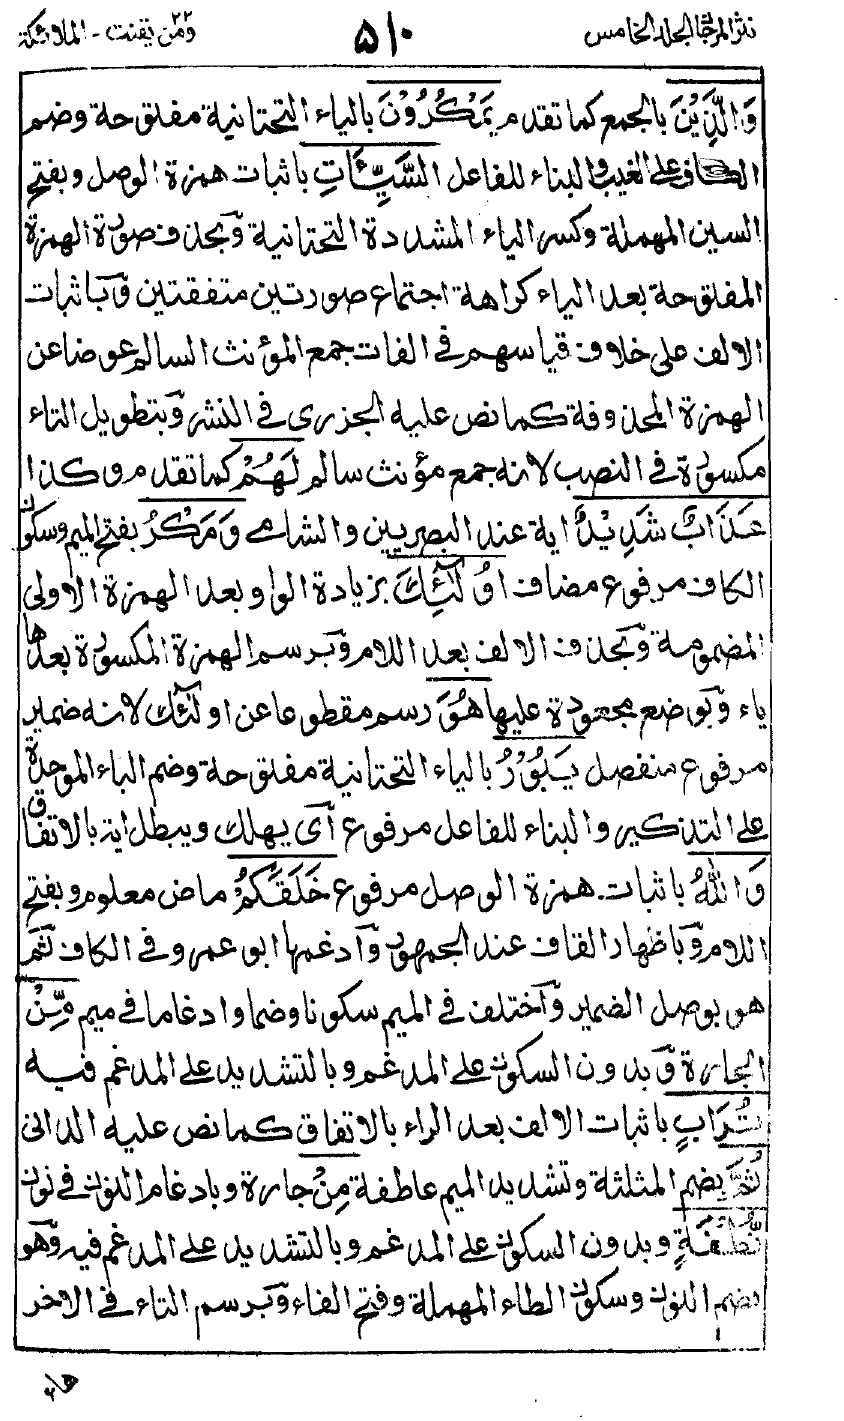 نثر المرجان الجلد الخامس ۵۱۰ ومن يقنت ۲۲ - الملائكة
وَالَّذِيْنَ بالجمع كما تقدم يَمْكُرُوْنَ بالياء التحتانية مفتوحة وضم
الكاف على الغيب والبناء للفاعل السَّيِّئَاتِ باثبات همزة الوصل وبفتح
السين المهملة وكسر الياء المشددة التحتانية وبحذف صورة الهمزة
المفتوحة بعد الياء كراهة اجتماع صورتين متفقتين وباثبات
الالف على خلاف قياسهم فى الفات جمع المؤنث السالم عوضا عن
الهمزة المحذوفة كما نص عليه الجزرى فى النشر وبتطويل التاء
مكسورة فى النصب لانه جمع مؤنث سالم لَهُمْ كما تقدم وكذا
عَذَابٌ شَدِيْدٌ اية عند البصريين والشامى وَمَكْرُ بفتح الميم وسكون
الكاف مرفوع مضاف اُولٰٓئِكَ بزيادة الواو بعد الهمزة الاولى
المضمومة وبحذف الالف بعد اللام وبرسم الهمزة المكسورة بعدها
ياء وبوضع مجعودة عليها هُوَ رسم مقطوعا عن اولٰئك لانه ضمير
مرفوع منفصل يَبُوْرُ بالياء التحتانية مفتوحة وضم الباء الموحدة
على التذكير والبناء للفاعل مرفوع أى يهلك ويبطل اية بالاتفاق
وَاللّٰهُ باثبات همزة الوصل مرفوع خَلَقَكُمْ ماض معلوم وبفتح
اللام وباظهار القاف عند الجمهور وادغمها ابو عمرو فى الكاف ثم
هو بوصل الضمير واختلف فى الميم سكونا وضما وادغاما فى ميم مِّنْ
الجارة وبدون السكون على المدغم وبالتشديد على المدغم فيه
تُرَابٍ باثبات الالف بعد الراء بالاتفاق كما نص عليه الدانى
ثُمَّ بضم المثلثة وتشديد الميم عاطفة مِنْ جارة وبادغام النون فى نون
نُّطْفَةٍ وبدون السكون على المدغم وبالتشديد على المدغم فيه وهو
بضم النون وسكون الطاء المهملة وفتح الفاء وبرسم التاء فى الاخر
هاء